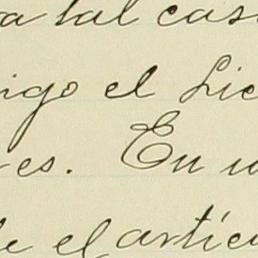 a tal cas
igo el Lic
es. En
de el artíc